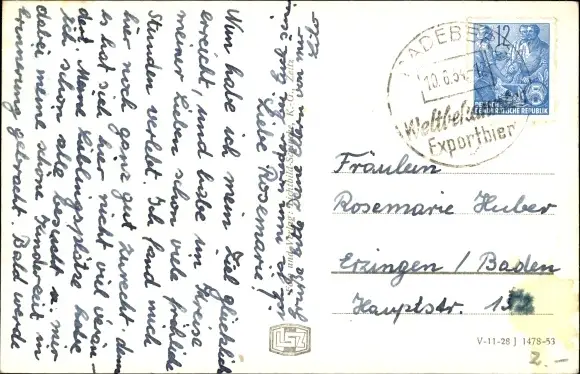 Liebe Rosemarie!
Nun habe ich mein Ziel glücklich
erreicht, und habe im Kreise
meiner Lieben schon viele fröhliche
Stunden verlebt. Ich fand mich
hier noch ganz gut zurecht, denn
es hat sich hier nicht viel verän-
dert. Meine Lieblingsplätze habe
ich schon alle besucht u. mir
dabei meine schöne Kinderzeit in
Erinnerung gebracht. Bald werde
Grüße bitte Deine Eltern von mir
RADEBE
10.6.54
Weltbekannt
Exportbier
12
DEUTSCHE DEMOKRATISCHE REPUBLIK
Fräulein
Rosemarie Huber
Erzingen / Baden
Hauptstr.
V-11-28 J 1478-53
2.-